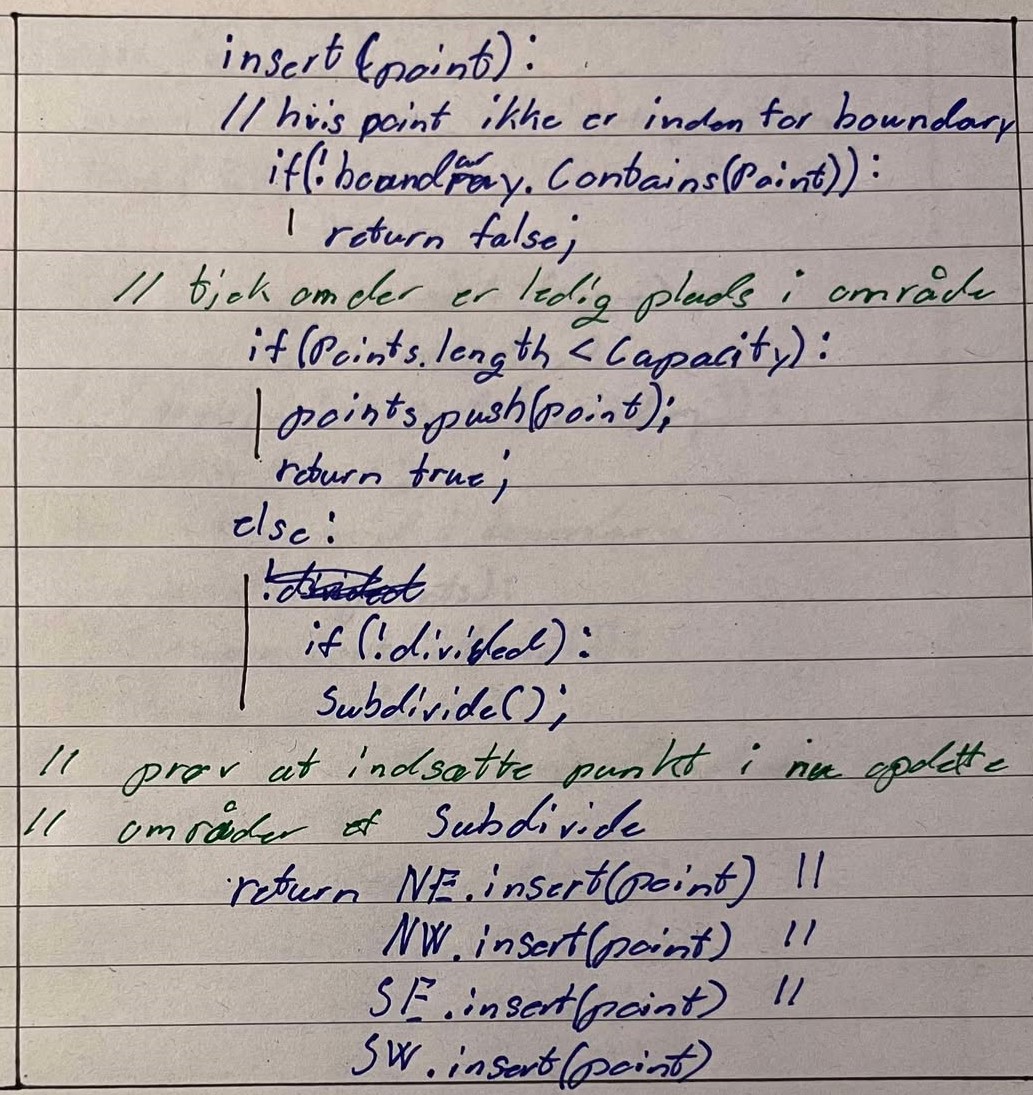 insert(point):
// hvis point ikke er inden for boundary
if(!boundary.Contains(Point)):
return false;
// tjek om der er ledig plads i område
if(Points.length < Capacity):
points.push(point);
return true;
else:
if (!divided):
Subdivide();
// prøv at indsætte punkt i opdelte
// områder af Subdivide
return NE.insert(point) ||
NW.insert(point) ||
SE.insert(point) ||
SW.insert(point)